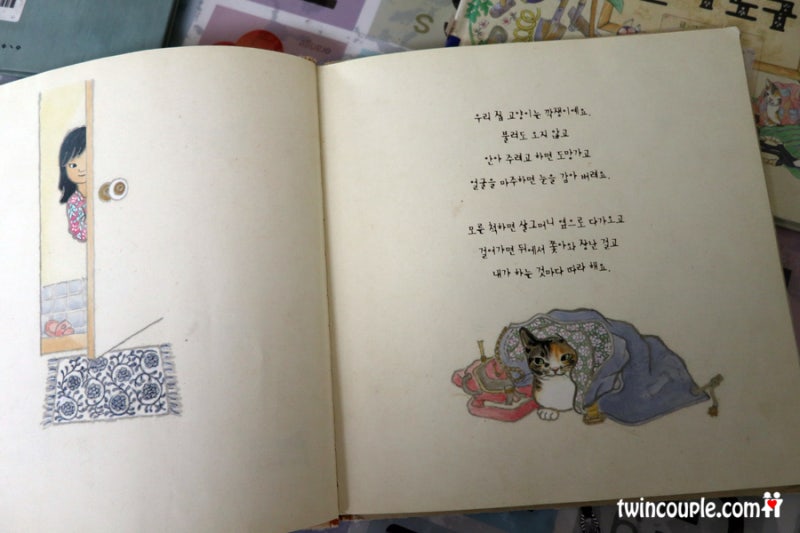 우리 집 고양이는 깍쟁이에요.
불러도 오지 않고
안아 주려고 하면 도망가고
얼굴을 마주하면 눈을 감아 버려요.
모른 척하면 살그머니 옆으로 다가오고
걸어가면 뒤에서 쫓아와 장난 걸고
내가 하는 것마다 따라 해요.
twincouple.com